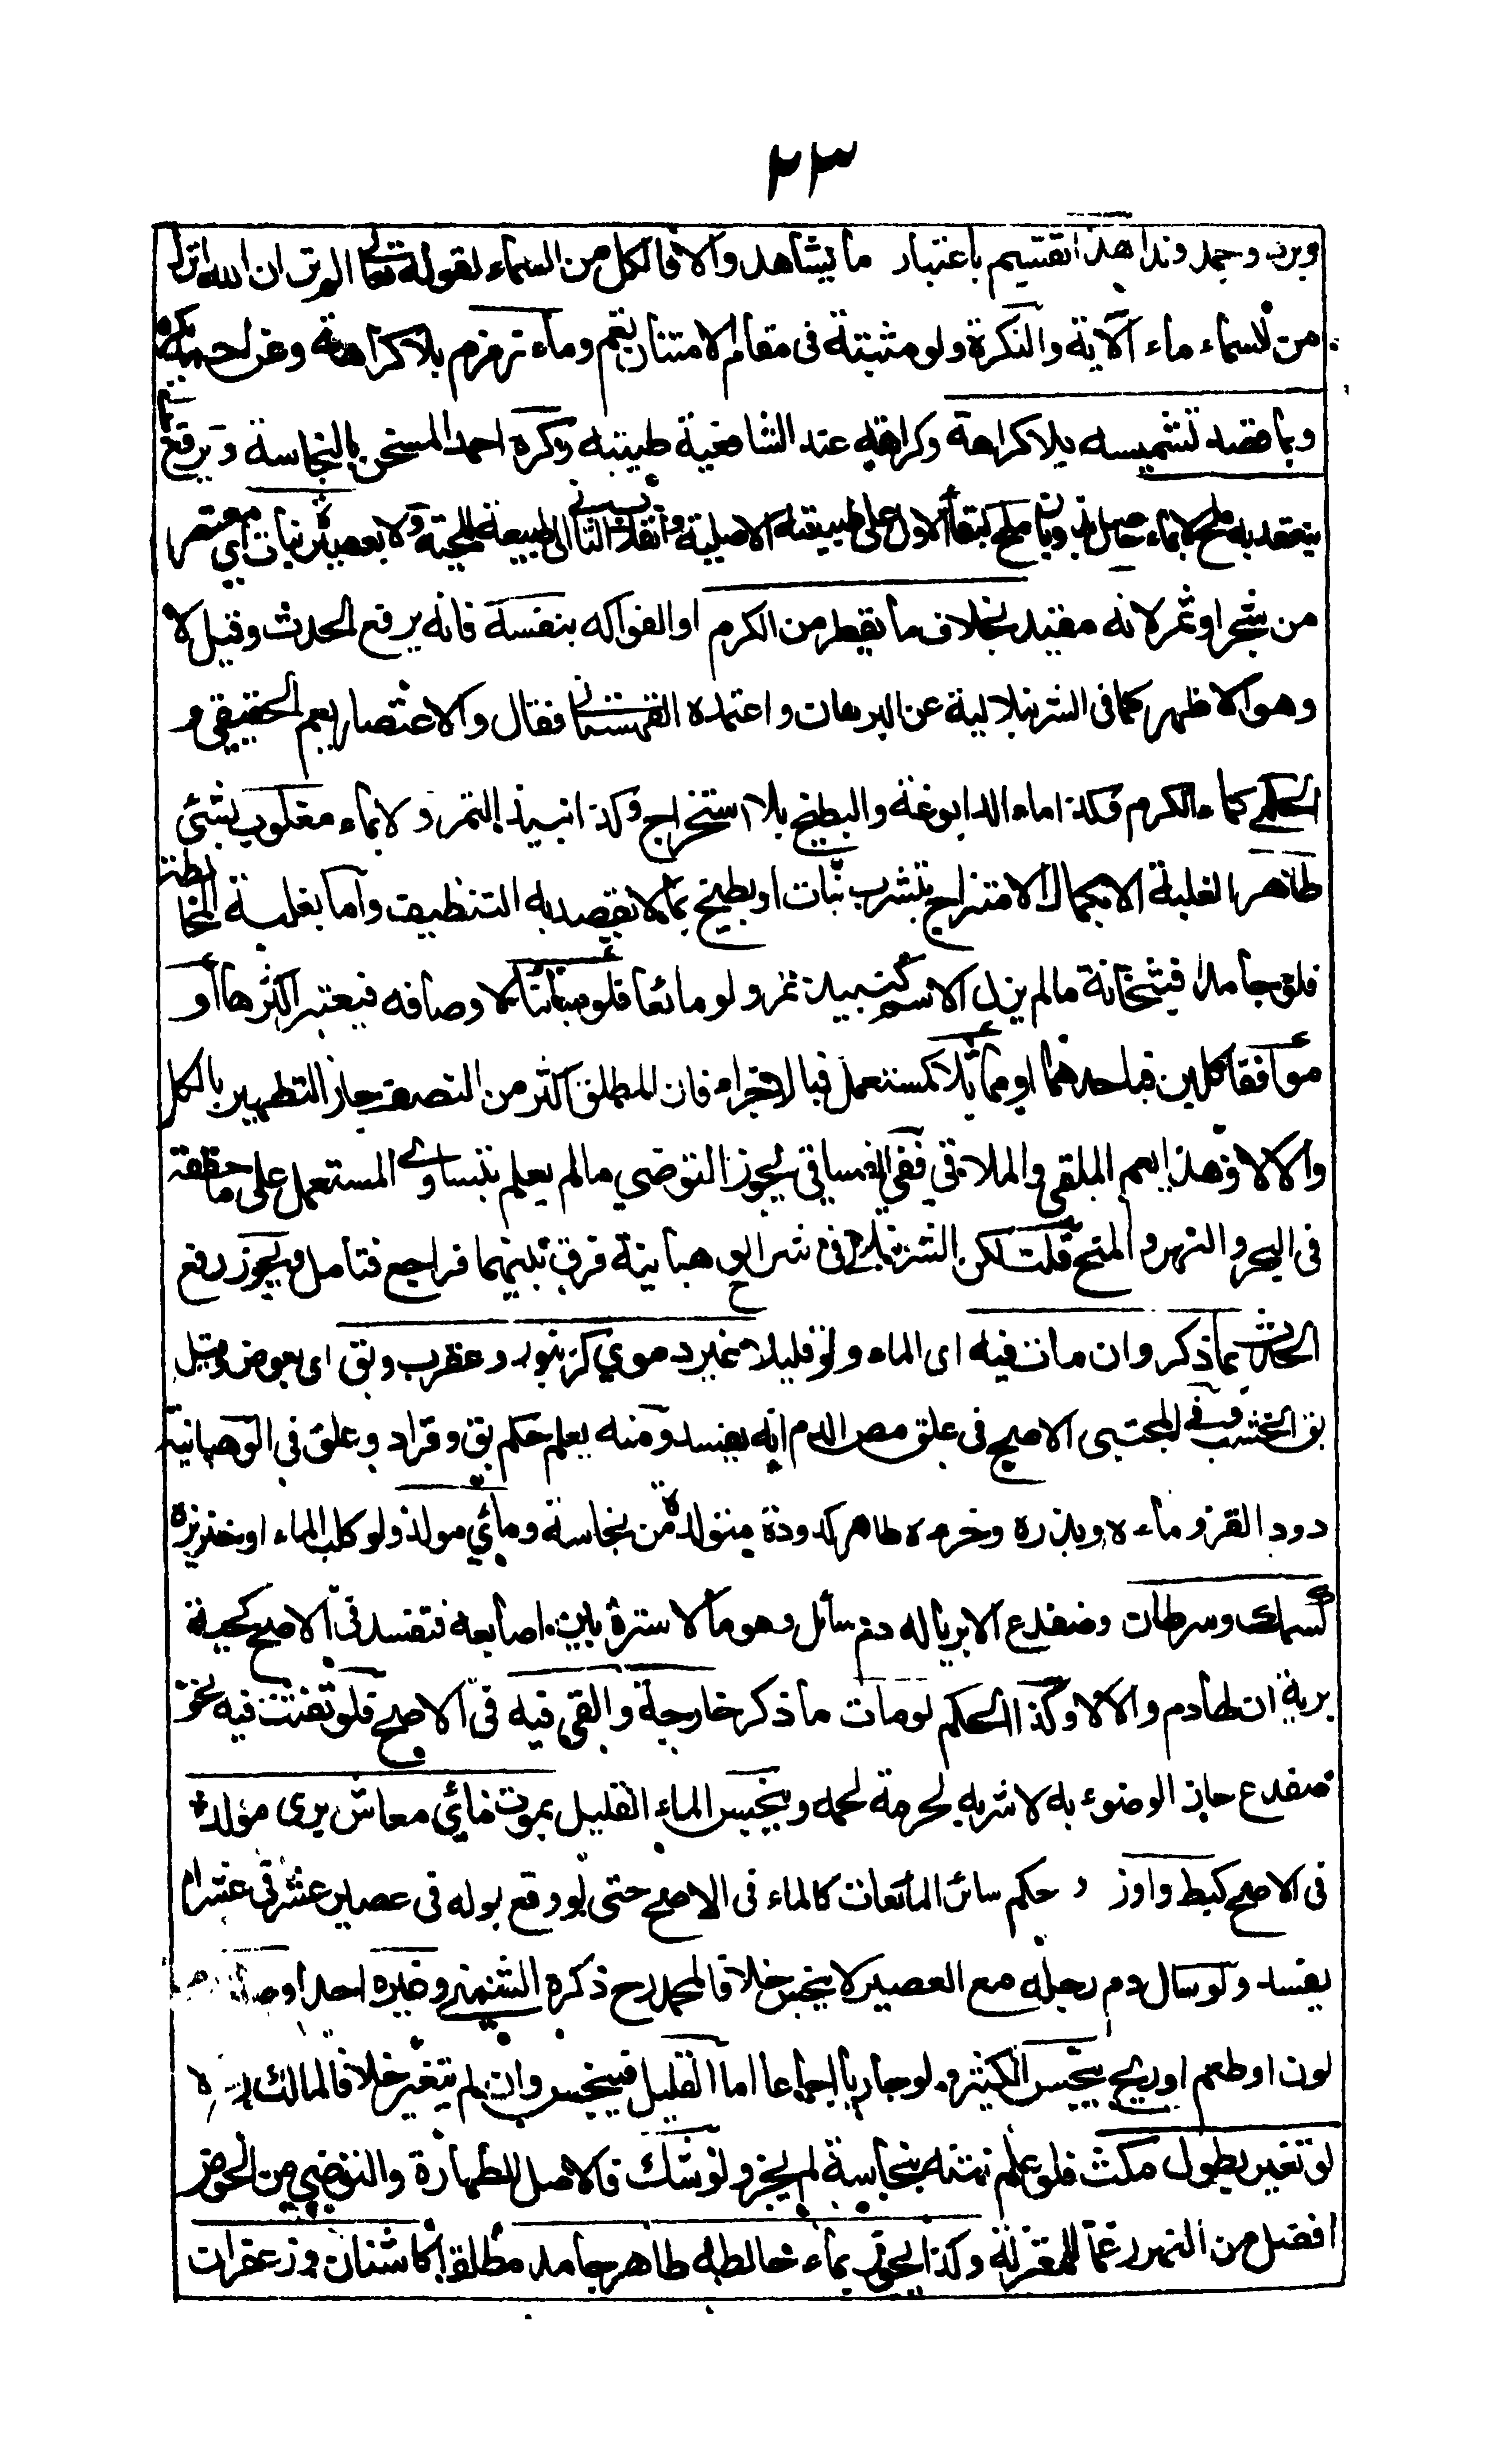 ٢٣
وبرد وجمد وندا هذا تقسيم باعتبار ما يشاهد والا فالكل من السماء لقوله تعالى الم تر ان الله انزل
من السماء ماء الآية والنكرة ولو مثبتة فى مقام الامتنان تعم وماء زمزم بلا كراهة وعن احمد يكره
وبما قصد تشميسه بلا كراهة وكراهته عند الشافعية طبيته وكره احمد المسخن بالنجاسة ويرفع بما
ينعقد به ملح لا بماء حاصل بذوبان ملح لبقاء الاول على طبيعته الاصلية وانقلاب الثانى الى طبيعة الملحية ولا بعصير نبات اى معتصر
من شجر او ثمر لانه مقيد بخلاف ما يقطر من الكرم او الفواكه بنفسه فانه يرفع الحدث وقيل لا
وهو الاظهر كما فى الشرنبلالية عن البرهان واعتمده القهستانى فقال والاعتصار يعم الحقيقى و
الحكمى كماء الكرم وكذا ماء الدابوغة والبطيخ بلا استخراج وكذا نبيذ التمر ولا بماء مغلوب بشئ
طاهر الغلبة الا بكمال الامتزاج بتشرب نبات او بطبخ بما لا يقصد به التنظيف واما بغلبة المخالط
فلو جامدا فبثخانة ما لم يزل الاسم كنبيذ تمر ولو مائعا فلو مباينا لاوصافه فبتغير اكثرها او
موافقا كلبن فباحدهما او مماثلا كمستعمل فبالاجزاء فان المطلق اكثر من النصف جاز التطهير بالكل
والا لا وهذا يعم الملقى والملاقى ففى الفساقى يجوز التوضى ما لم يعلم تساوى المستعمل على ما حققه
فى البحر والنهر والمنح قلت لكن الشرنبلالى فى شرح الوهبانية فرق بينهما فراجع فتامل ويجوز رفع
الحدث بما ذكر وان مات فيه اى الماء ولو قليلا غير دموي كزنبور وعقرب وبق اى بعوض وقيل
بق الخشب وفى المجتبى الاصح فى علق مص الدم انه يفسد ومنه يعلم حكم بق وقراد وعلق فى الوهبانية
دود القز وماءه وبذره وخرءه طاهر كدودة متولدة من نجاسة ومائي مولد ولو كلب الماء او خنزيره
كسمك وسرطان وضفدع الا بريا له دم سائل وهو ما لا سترة بين اصابعه فتفسد فى الاصح كحية
برية ان لها دم والا لا وكذا الحكم لو مات ما ذكر خارجه والقى فيه فى الاصح فلو تفتت فيه نحو
ضفدع جاز الوضوء به لا شربه لحرمة لحمه وينجس الماء القليل بموت مائي معاش برى مولد
فى الاصح كبط واوز وحكم سائر المائعات كالماء فى الاصح حتى لو وقع بوله فى عصير عشر فى عشر لم
يفسد ولو سال دم رجله مع العصير لا ينجس خلافا لمحمد رح ذكره الشمنى وغيره احد اوصافه
لون او طعم او ريح ينجس الكثير ولو جاريا اجماعا اما القليل فينجس وان لم يتغير خلافا لمالك لا
لو تغير بطول مكث فلو علم نتنه بنجاسة لم يجز ولو شك فالاصل الطهارة والتوضى من الحوض
افضل من النهر رغما للمعتزلة وكذا يجوز بماء خالطه طاهر جامد مطلقا كاشنان وزعفران